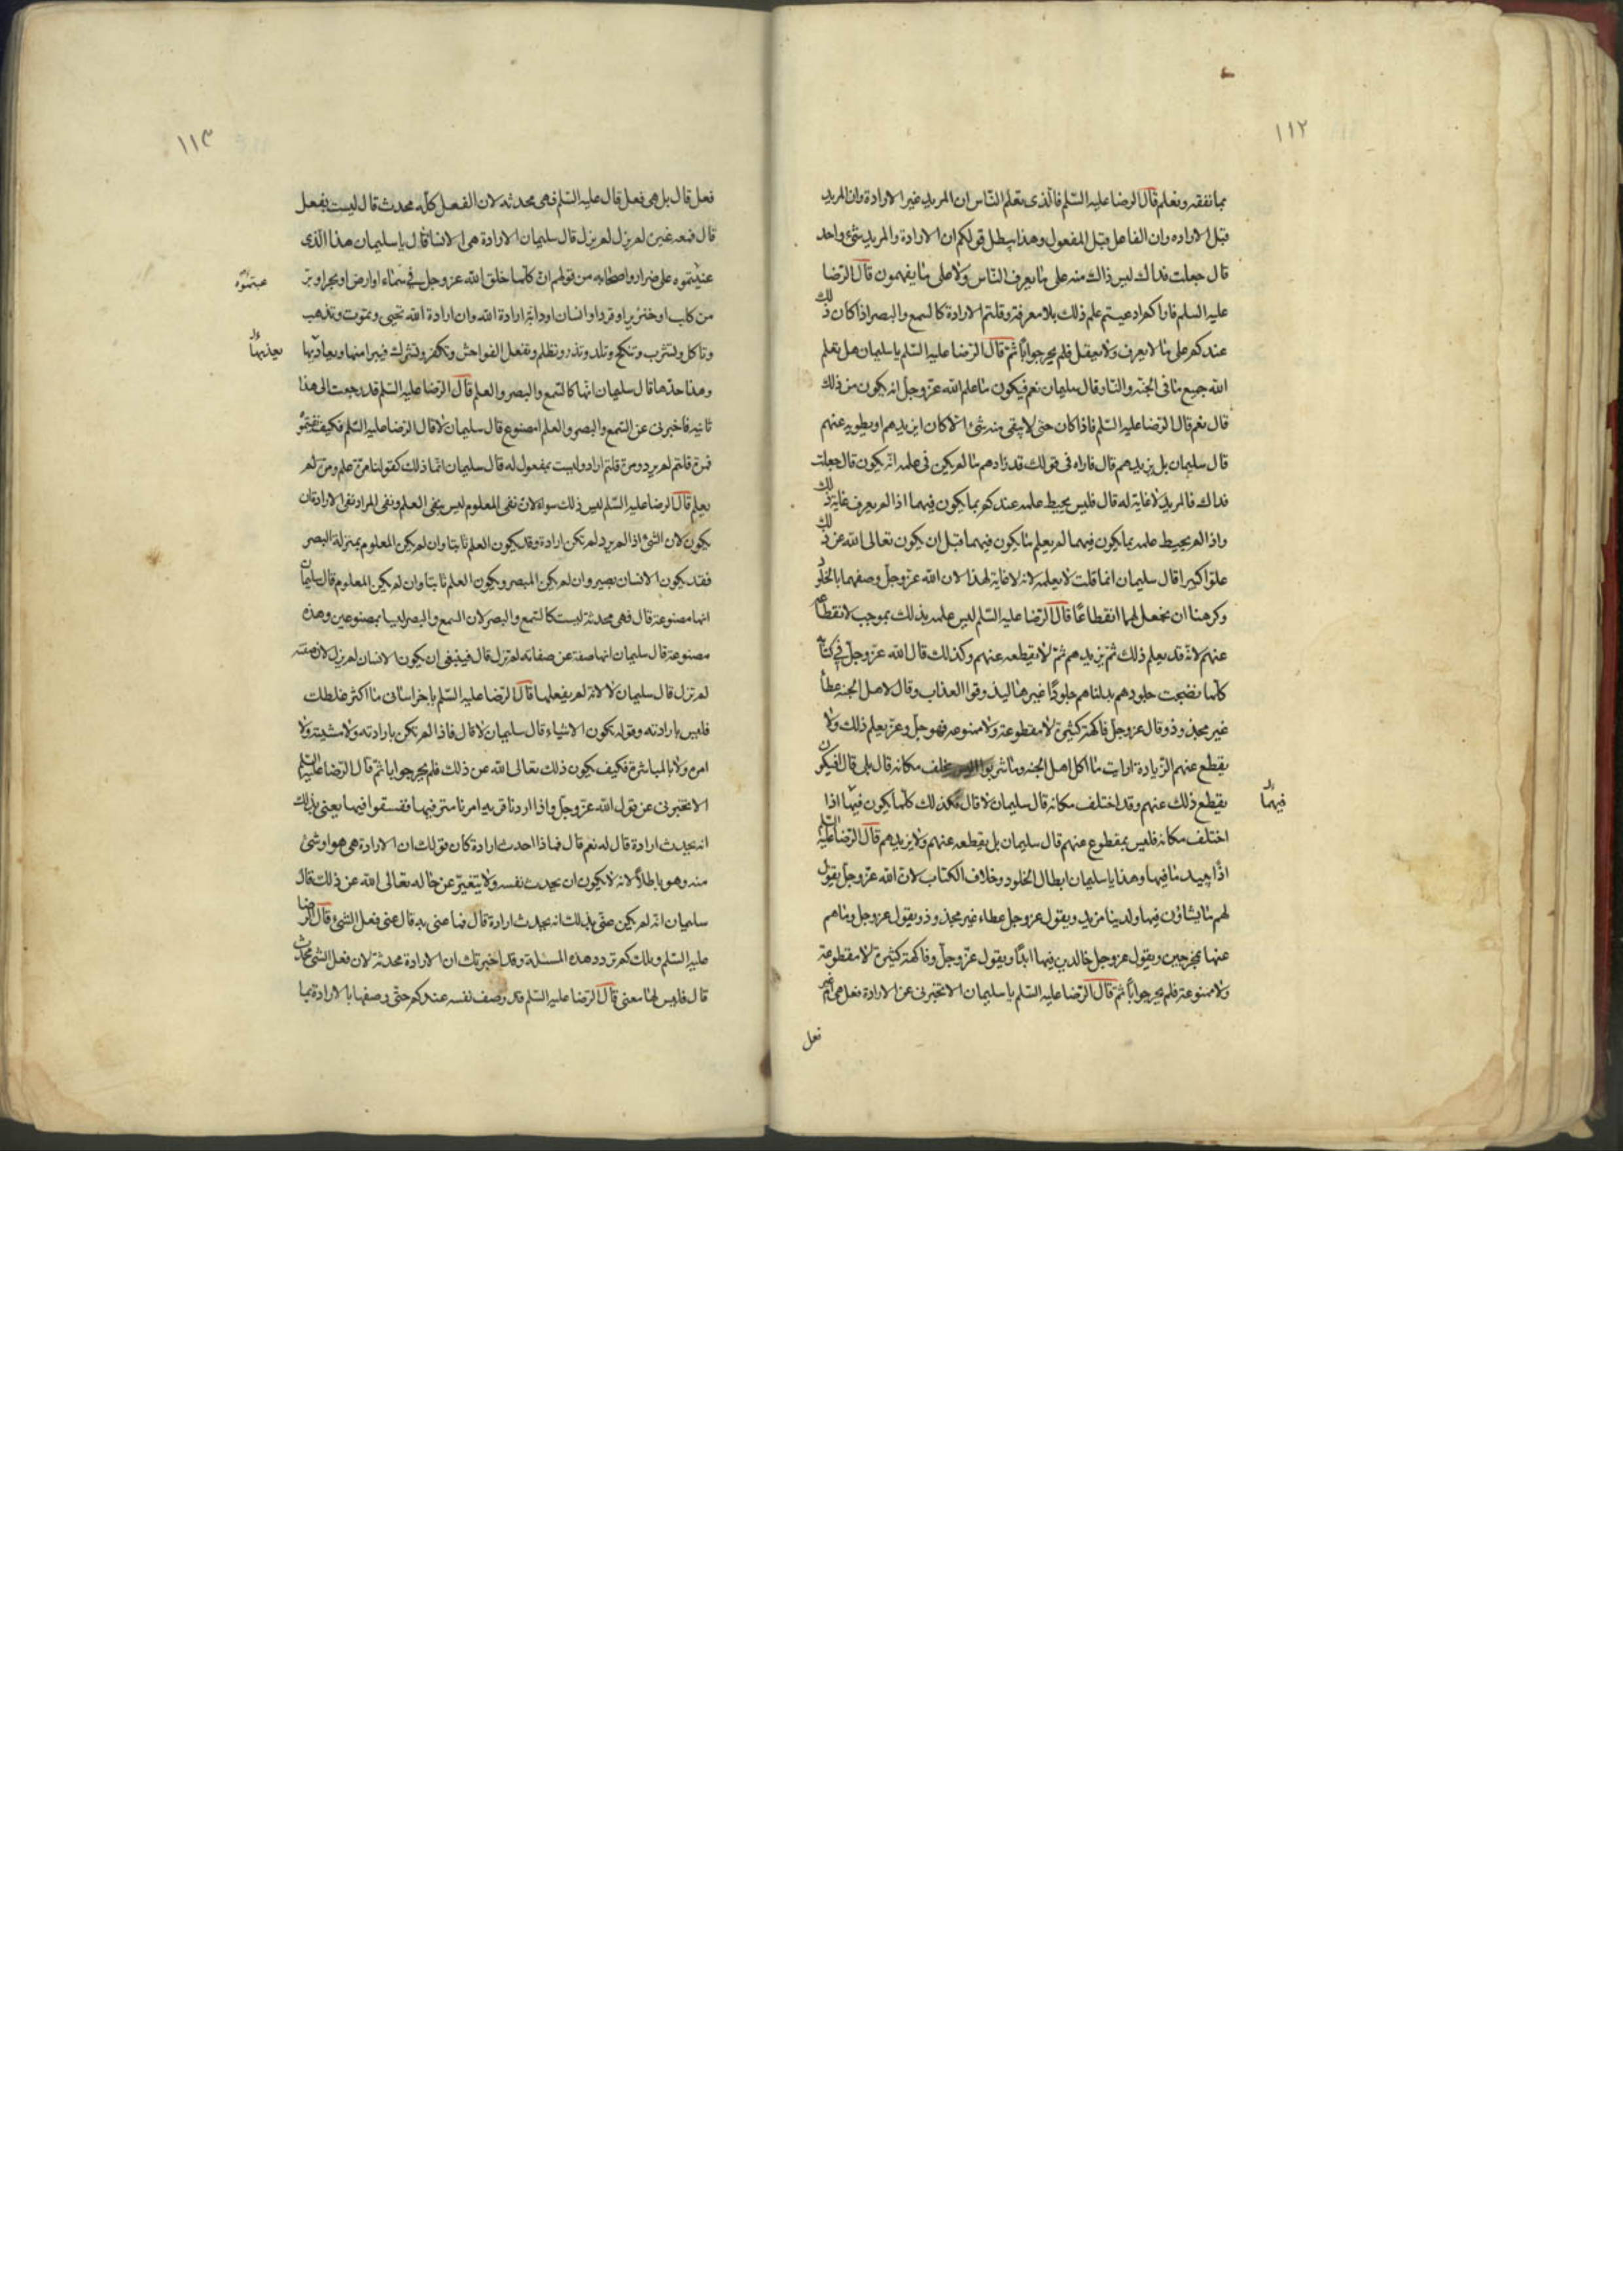 ١١٢
بما نفقه ونعلم قال الرضا عليه السّلم فالّذى يعلم النّاس ان المريد غير الارادة وان المريد
قبل الاراده وان الفاعل قبل المفعول وهذا يبطل قولكم ان الارادة والمريد شئ واحد
قال جعلت فداك ليس ذاك منه على ما يعرف النّاس ولا على ما يفهمون قال الرّضا
عليه السلم فاراكم ادعيتم علم ذلك بلا معرفة وقلتم الارادة كالسمع والبصر اذا كان ذلك
عندكم على ما لا يعرف ولا يعقل فلم يحر جوابًا ثمّ قال الرّضا عليه السّلم يا سليمان هل يعلم
الله جميع ما فى الجنّه والنار قال سليمان نعم فيكون ما علم الله عزّ وجلّ انه يكون من ذلك
قال نعم قال الرّضا عليه السّلم فاذا كان حتى لا يبقى منه شئ الا كان ايزيدهم او يطويه عنهم
قال سليمان بل يزيدهم قال فاراه فى قولك قد زادهم ما لم يكن فى علمه انّه يكون قال جعلت
فداك فالمريد لا غاية له قال فليس يحيط علمه عندكم بما يكون فيهما اذا لم يعرف غاية ذلك
واذا لم يحيط علمه بما يكون فيهما لم يعلم ما يكون فيهما قبل ان يكون تعالى الله عن ذلك
علوّا كبيرا قال سليمان انما قلت لا يعلمه لانه لا غاية لهذا لان الله عزّ وجلّ وصفهما بالخلود
وكرهنا ان نجعل لهما انقطاعًا قال الرّضا عليه السّلم ليس علمه بذلك بموجب لانقطاعه
عنهم لانّه قد يعلم ذلك ثمّ يزيدهم ثمّ لا يقطعه عنهم وكذلك قال الله عزّ وجلّ فى كتابه
كلّما نضجت جلودهم بدلناهم جلودًا غيرها ليذوقوا العذاب وقال لاهل الجنه عطاء
غير مجذوذ وقال عزوجلّ وفاكهة كثيرة لا مقطوعة ولا ممنوعه فهو جلّ وعزّ يعلم ذلك ولا
يقطع عنهم الزّيادة ارايت ما اكل اهل الجنه وما شربوا اليس يخلف مكانه قال بلى قال افيكون
يقطع ذلك عنهم وقد اختلف مكانه قال سليمان لا قال فكذلك كلّما يكون فيها اذا
فيهما
اختلف مكانه فليس بمقطوع عنهم قال سليمان بل يقطعه عنهم ولا يزيدهم قال الرّضا عليه السّلم
اذًا يبيد ما فيها وهذا يا سليمان ابطال الخلود وخلاف الكتاب لانّ الله عزّ وجلّ يقول
لهم ما يشاؤن فيها ولدينا مزيد ويقول عزوجل عطاء غير مجذوذ ويقول عزوجل وما هم
عنها بمخرجين ويقول عزوجل خالدين فيها ابدًا ويقول عزّوجلّ وفاكهة كثيرة لا مقطوعة
ولا ممنوعة فلم يحر جوابًا ثمّ قال الرّضا عليه السّلم يا سليمان الا تخبرنى عن الارادة فعل هى ام غير
فعل
١١٣
فعل قال بل هى فعل قال عليه السّلم فهى محدثه لان الفعل كلّه محدث قال ليست بفعل
قال فمعه غيره لم يزل قال سليمان الارادة هى الانشا قال يا سليمان هذا الّذى
عنيتموه على ضرار واصحابه من قولهم ان كلّما خلق الله عزوجل فى سمآء او ارض او بحر او برّ
عبتموه
من كلب او خنزير او قرد او انسان او دابّة ارادة الله وان ارادة الله تحيى وتموت وتذهب
وتاكل وتشرب وتنكح وتلد وتذر وتظلم وتفعل الفواحش وتكفر وتشرك فيبرا منها ويعاديها
يعذبها
وهذا حدّها قال سليمان انّها كالسّمع والبصر والعلم قال الرّضا عليه السّلم قد رجعت الى هذا
ثانيه فاخبرنى عن السّمع والبصر والعلم امصنوع قال سليمان لا قال الرّضا عليه السّلم فكيف نفيتموه
فمرة قلتم لم يرد ومرة قلتم اراد وليست بمفعول له قال سليمان انّما ذلك كقولنا مرّة علم ومرّة لم
يعلم قال الرّضا عليه السّلم ليس ذلك سواء لانّ نفى المعلوم ليس بنفى العلم ونفى المراد نفى الارادة ان
يكون لان الشئ اذا لم يرد لم تكن ارادة وقد يكون العلم ثابتا وان لم يكن المعلوم بمنزلة البصر
فقد يكون الانسان بصير وان لم يكن المبصر ويكون العلم ثابتا وان لم يكن المعلوم قال سليمان
انّها مصنوعة قال فهى محدثة ليست كالسّمع والبصر لان السمع والبصر ليسا بمصنوعين وهذه
مصنوعة قال سليمان انّها صفة من صفاته لم تزل قال فينبغى ان يكون الانسان لم يزل لان صفته
لم تزل قال سليمان لا لانه لم يفعلها قال الرّضا عليه السّلم يا خراسانى ما اكثر غلطك
فليس بارادته وقوله تكون الاشياء قال سليمان لا قال فاذا لم تكن بارادته ولا مشيته ولا
امره ولا بالمباشرة فكيف يكون ذلك تعالى الله عن ذلك فلم يحر جوابا ثمّ قال الرّضا عليه السّلم
الا تخبرنى عن قول الله عزّ وجلّ واذا اردنا قريه امرنا مترفيها ففسقوا فيها يعنى بذلك
انه يحدث ارادة قال له نعم قال فاذا احدث ارادة كان قولك ان الارادة هى هو او شئ
منه وهو باطلاً لانه لا يكون ان يحدث نفسه ولا يتغيّر عن حاله تعالى الله عن ذلك قال
سليمان انه لم يكن عنى بذلك انه يحدث ارادة قال فما عنى به قال عنى فعل الشئ قال الرّضا
عليه السّلم ويلك كم تردد هذه المسئلة وقد اخبرتك ان الارادة محدثة لان فعل الشئ محدث
قال فليس لها معنى قال الرّضا عليه السّلم قد وصف نفسه عندكم حتّى وصفها بالارادة بما